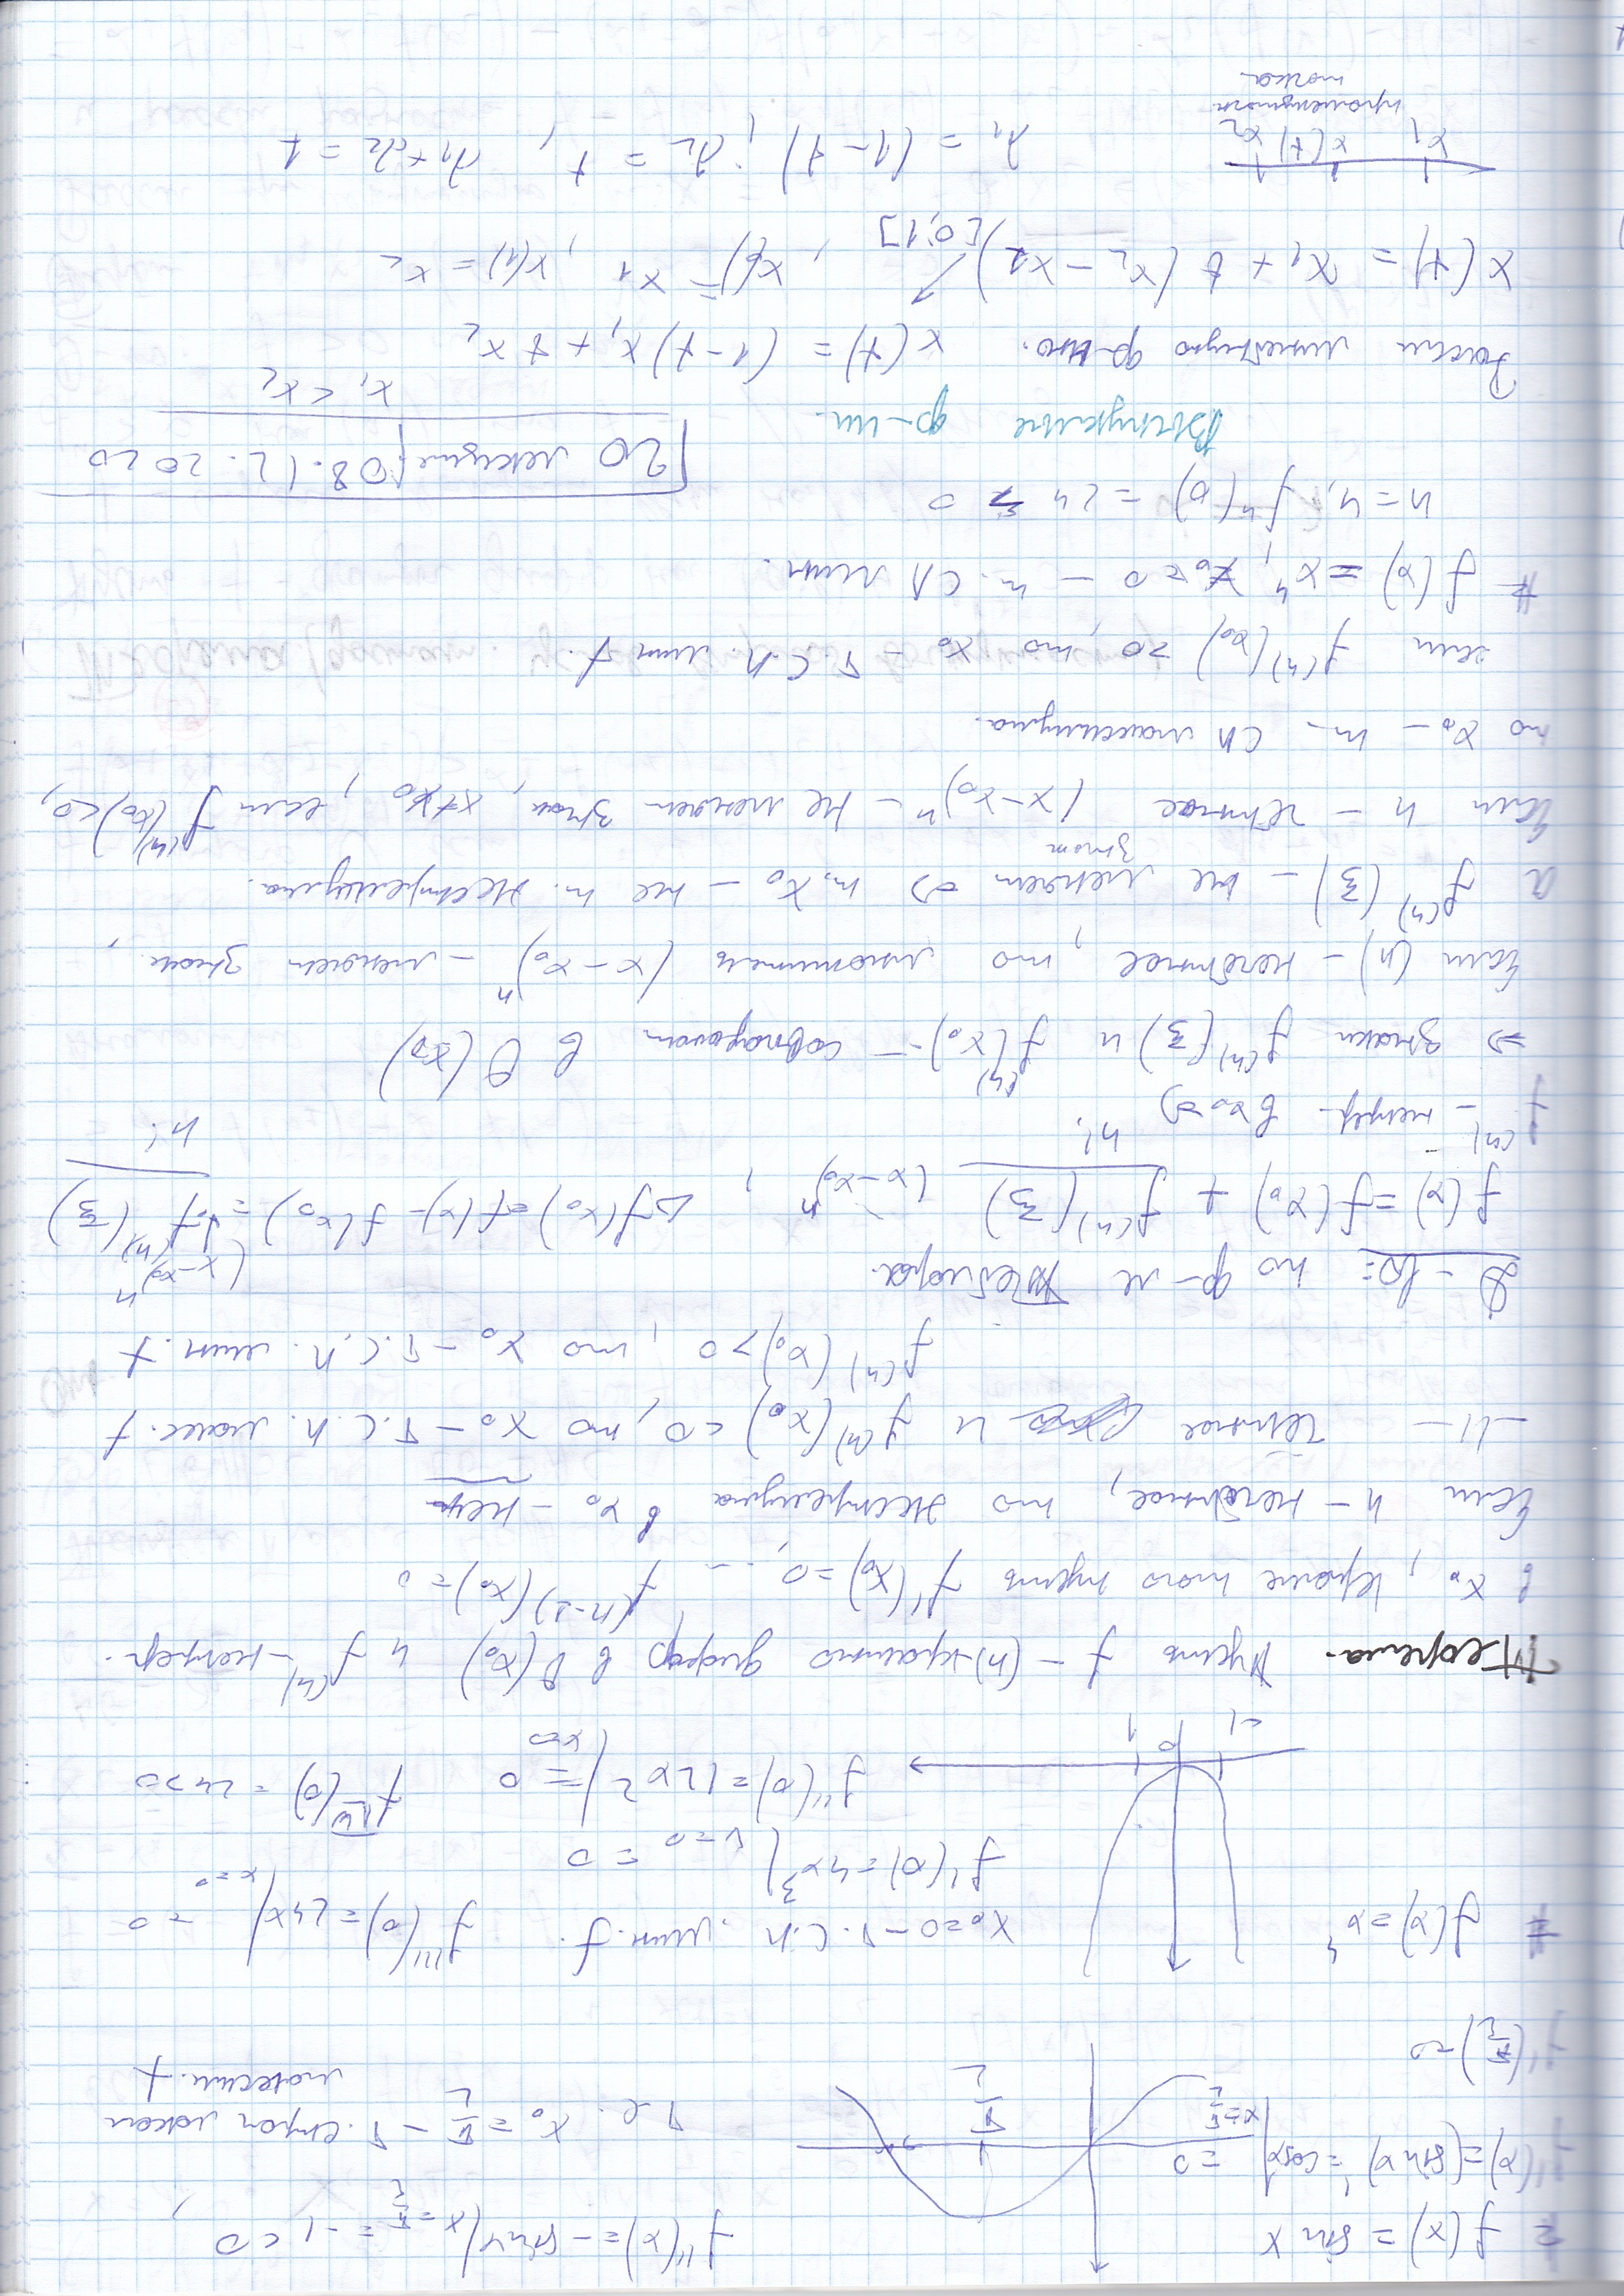 # f(x) = sin x
f'(x) = (sin x)' = cos x |x=π/2 = 0
f'(π/2) = 0
π/2
f''(x) = - sin x |x=π/2 = -1 < 0,
т.е. x₀ = π/2 - т. строг локал
максим. f
# f(x) = x⁴
-1 0 1
x₀=0 - т. с. л. мин. f.
f'(0) = 4x³ |x=0 = 0
f''(0) = 12x² |x=0 = 0
f'''(0) = 24x |x=0 = 0
f^IV(0) = 24 > 0
Теорема. Пусть f - (n)-кратно дифф в O(x₀) и f⁽ⁿ⁾ - непрер.
в x₀, кроме того пусть f'(x₀) = 0, ... f⁽ⁿ⁻¹⁾(x₀) = 0
Если n - нечётное, то экстремума в x₀ - нет
-//- чётное и f⁽ⁿ⁾(x₀) < 0, то x₀ - т. с. л. макс. f
f⁽ⁿ⁾(x₀) > 0, то x₀ - т. с. л. мин. f
Д-во: по ф-м Тейлора.
f(x) = f(x₀) + f⁽ⁿ⁾(ξ)/n! (x-x₀)ⁿ, Δf(x₀) = f(x) - f(x₀) = f⁽ⁿ⁾(ξ)/n! (x-x₀)ⁿ
f⁽ⁿ⁾ - непрер. в x₀
⇒ знаки f⁽ⁿ⁾(ξ) и f⁽ⁿ⁾(x₀) - совпадают в O(x₀)
Если (n) - нечётное, то множитель (x-x₀)ⁿ - меняет знак,
а f⁽ⁿ⁾(ξ) - не меняет знак ⇒ т. x₀ - не т. экстремума.
Если n - чётное (x-x₀)ⁿ - не меняет знак, x≠x₀, если f⁽ⁿ⁾(x₀) < 0,
то x₀ - т. СЛ максимума.
если f⁽ⁿ⁾(x₀) > 0, то x₀ - т. с. л. мин f.
# f(x) = x⁴, x₀ = 0 - т. СЛ мин.
n = 4, f⁴(0) = 24 > 0
20 лекция 08.12.2020
Выпуклые ф-ии.
Рассм линейную ф-ию. x(t) = (1-t)x₁ + t x₂ x₁ < x₂
x(t) = x₁ + t(x₂ - x₁) ↗ [0;1], x(0) = x₁, x(1) = x₂
x₁ x(t) x₂
промежуточн.
точка
λ₁ = (1-t); λ₂ = t, λ₁+λ₂ = 1